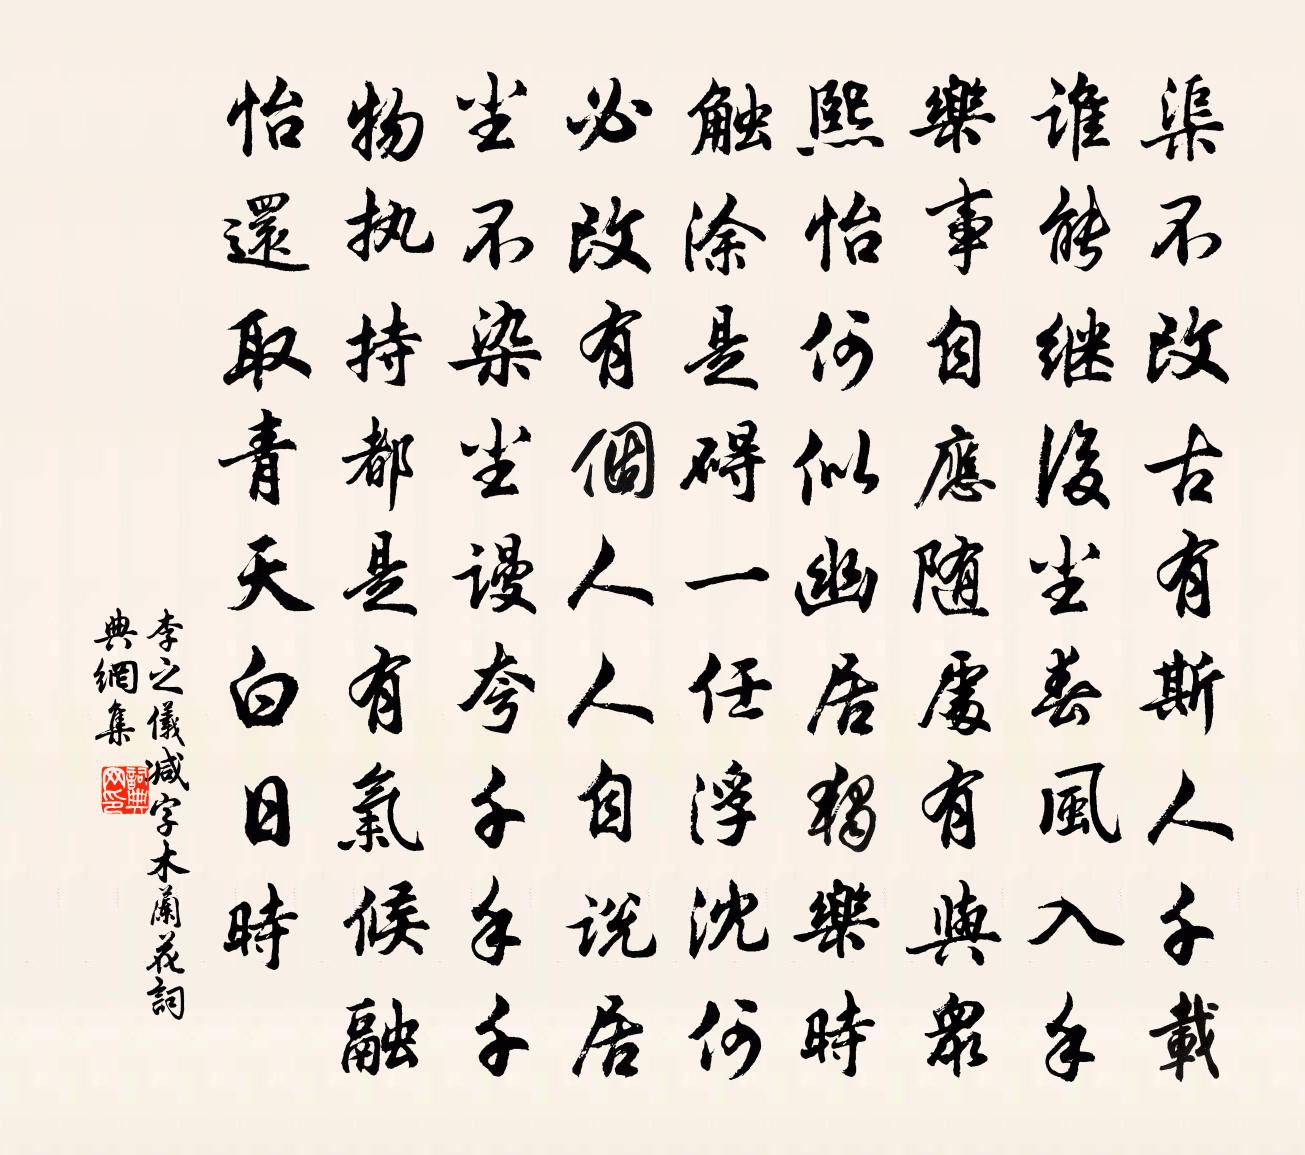 渠不改古有斯人千載
誰能继後尘春風入手
樂事自應随處有與眾
熙怡何似幽居獨樂時
触涂是碍一任浮沈何
必改有個人人自说居
尘不染尘谩夸千手千
物执持都是有氣候融
怡還取青天白日時
李之儀减字木蘭花詞
典網集
詞典
网印